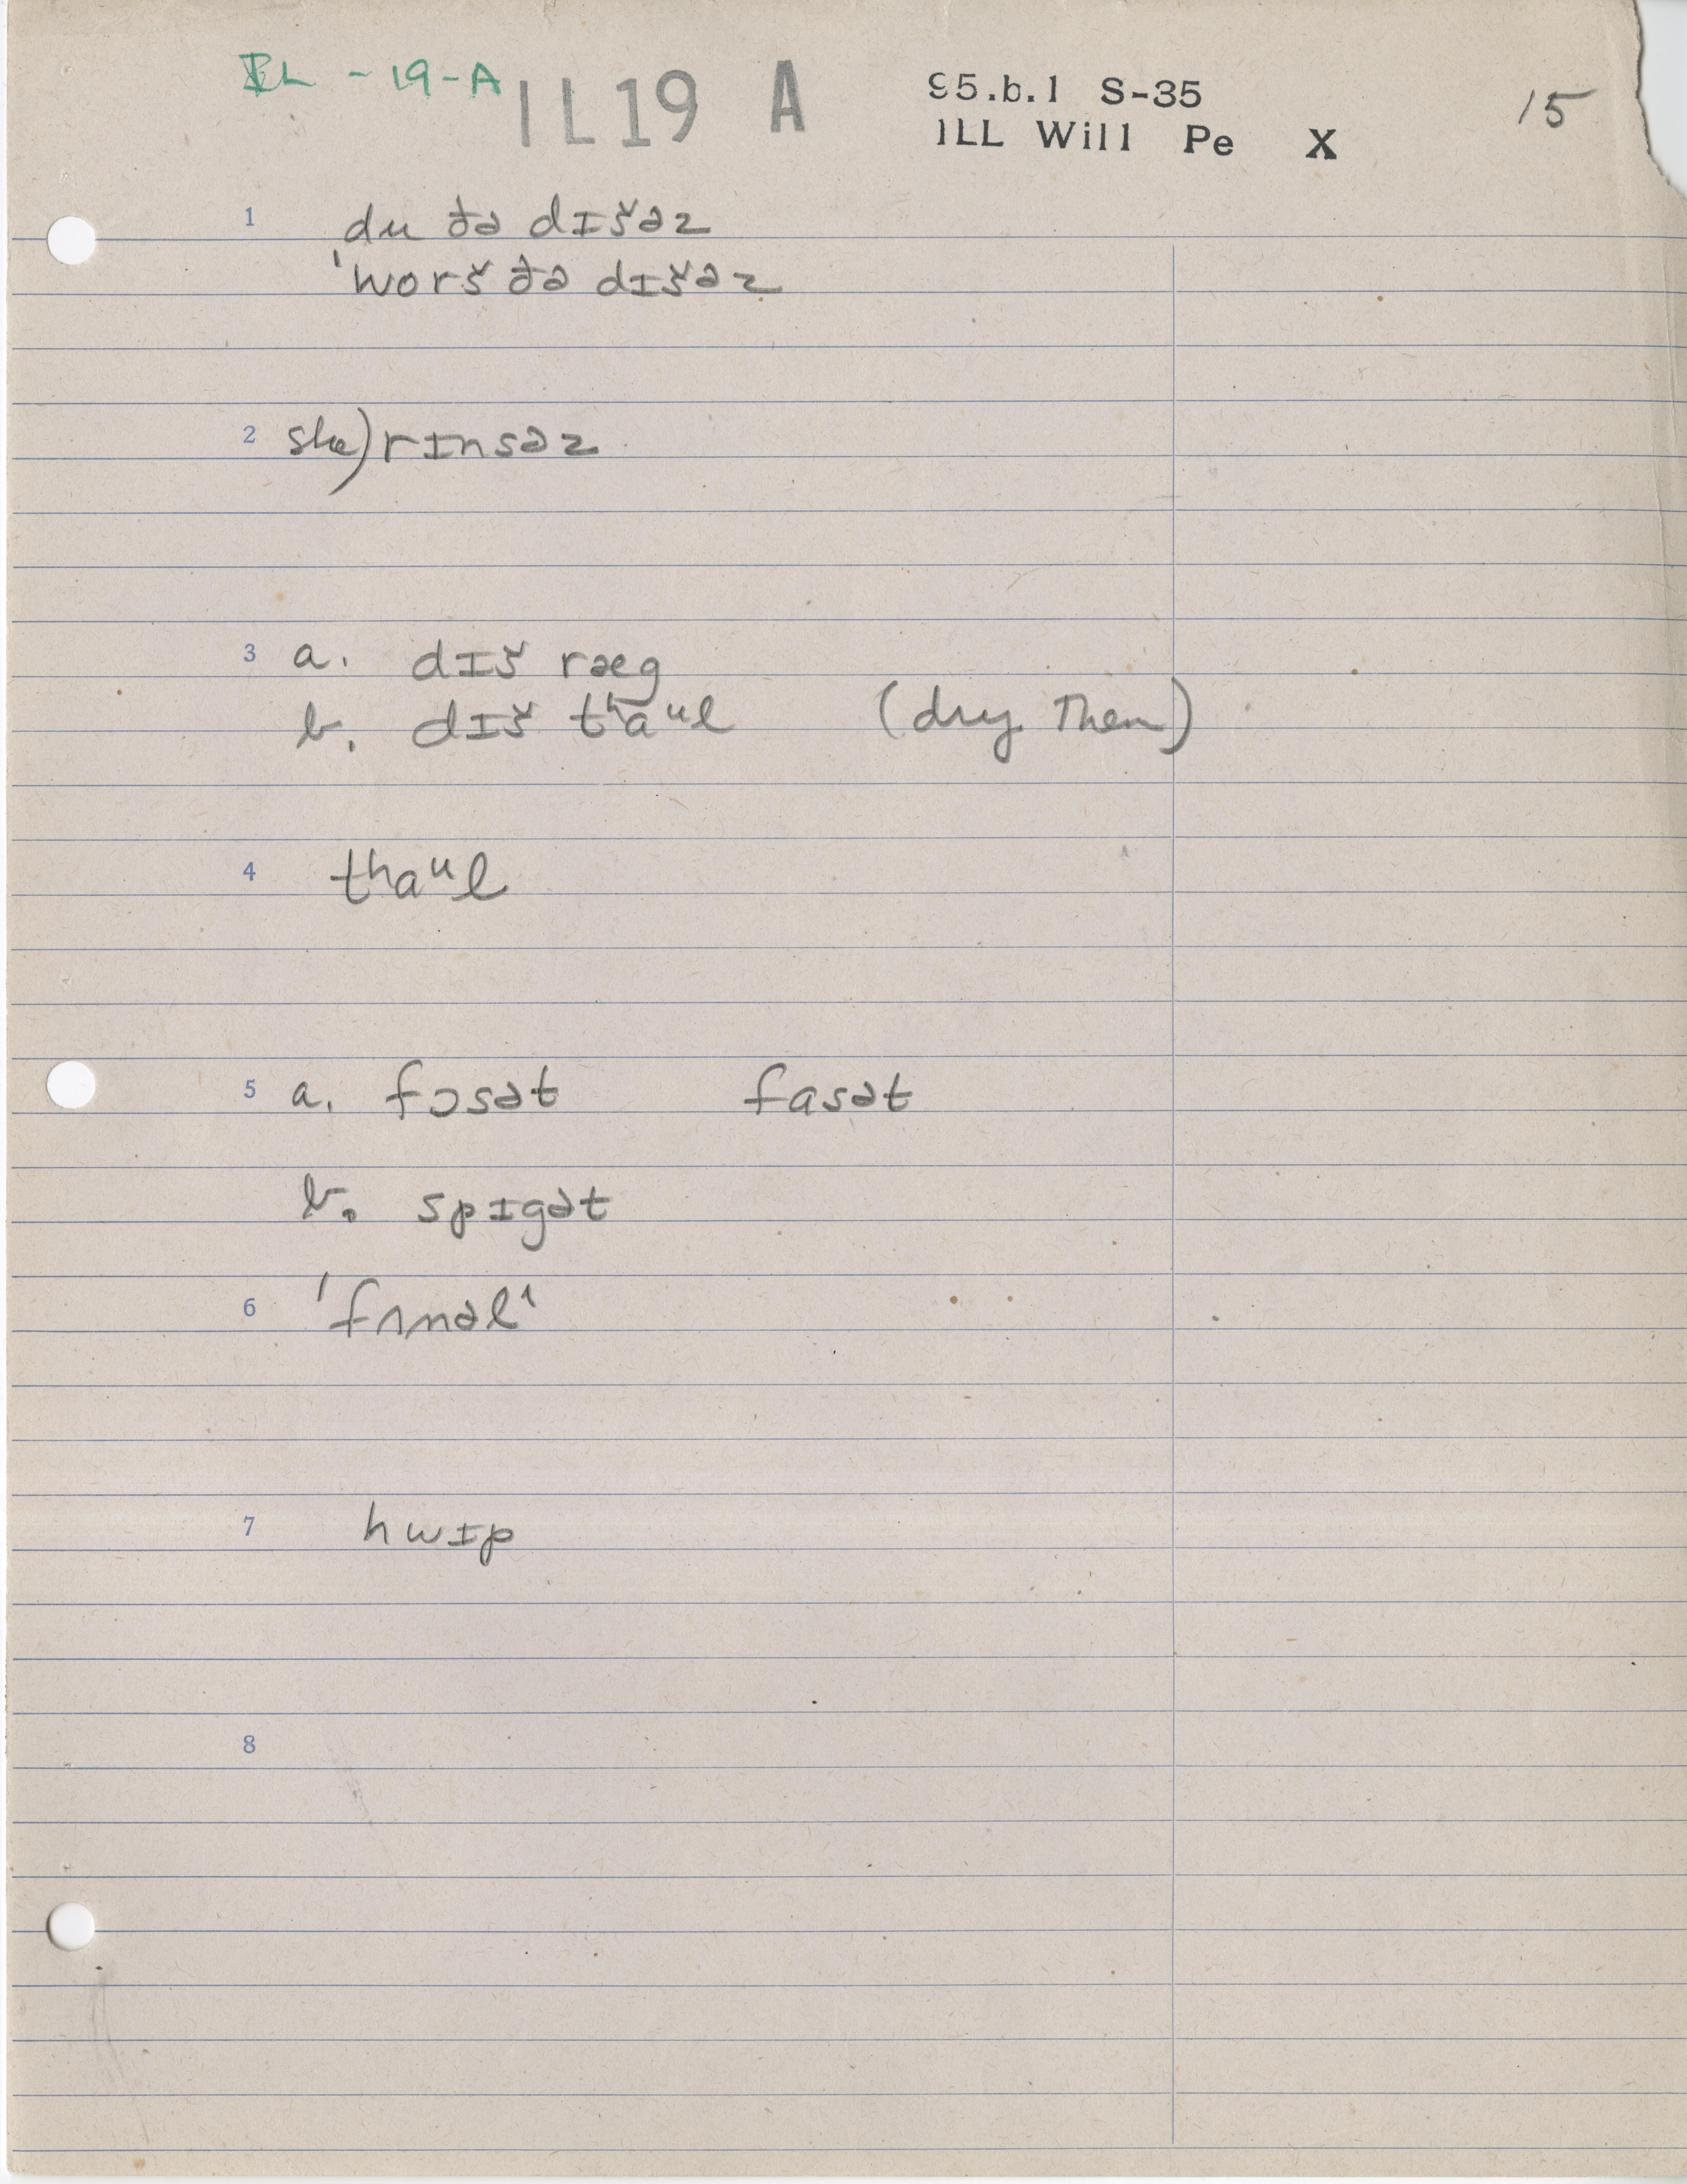 IL - 19 - A IL19 A 95.b.1 S-35 15
ILL Will Pe X
1 du ðə dɪšəz
'worš ðə dɪšəz
2 she) rɪnsəz
3 a. dɪš ræg
b. dɪš tʰaᵘl (dry them)
4 tʰaᵘl
5 a. fɔsət fasət
b. spɪgət
6 'fʌnəl'
7 hwɪp
8